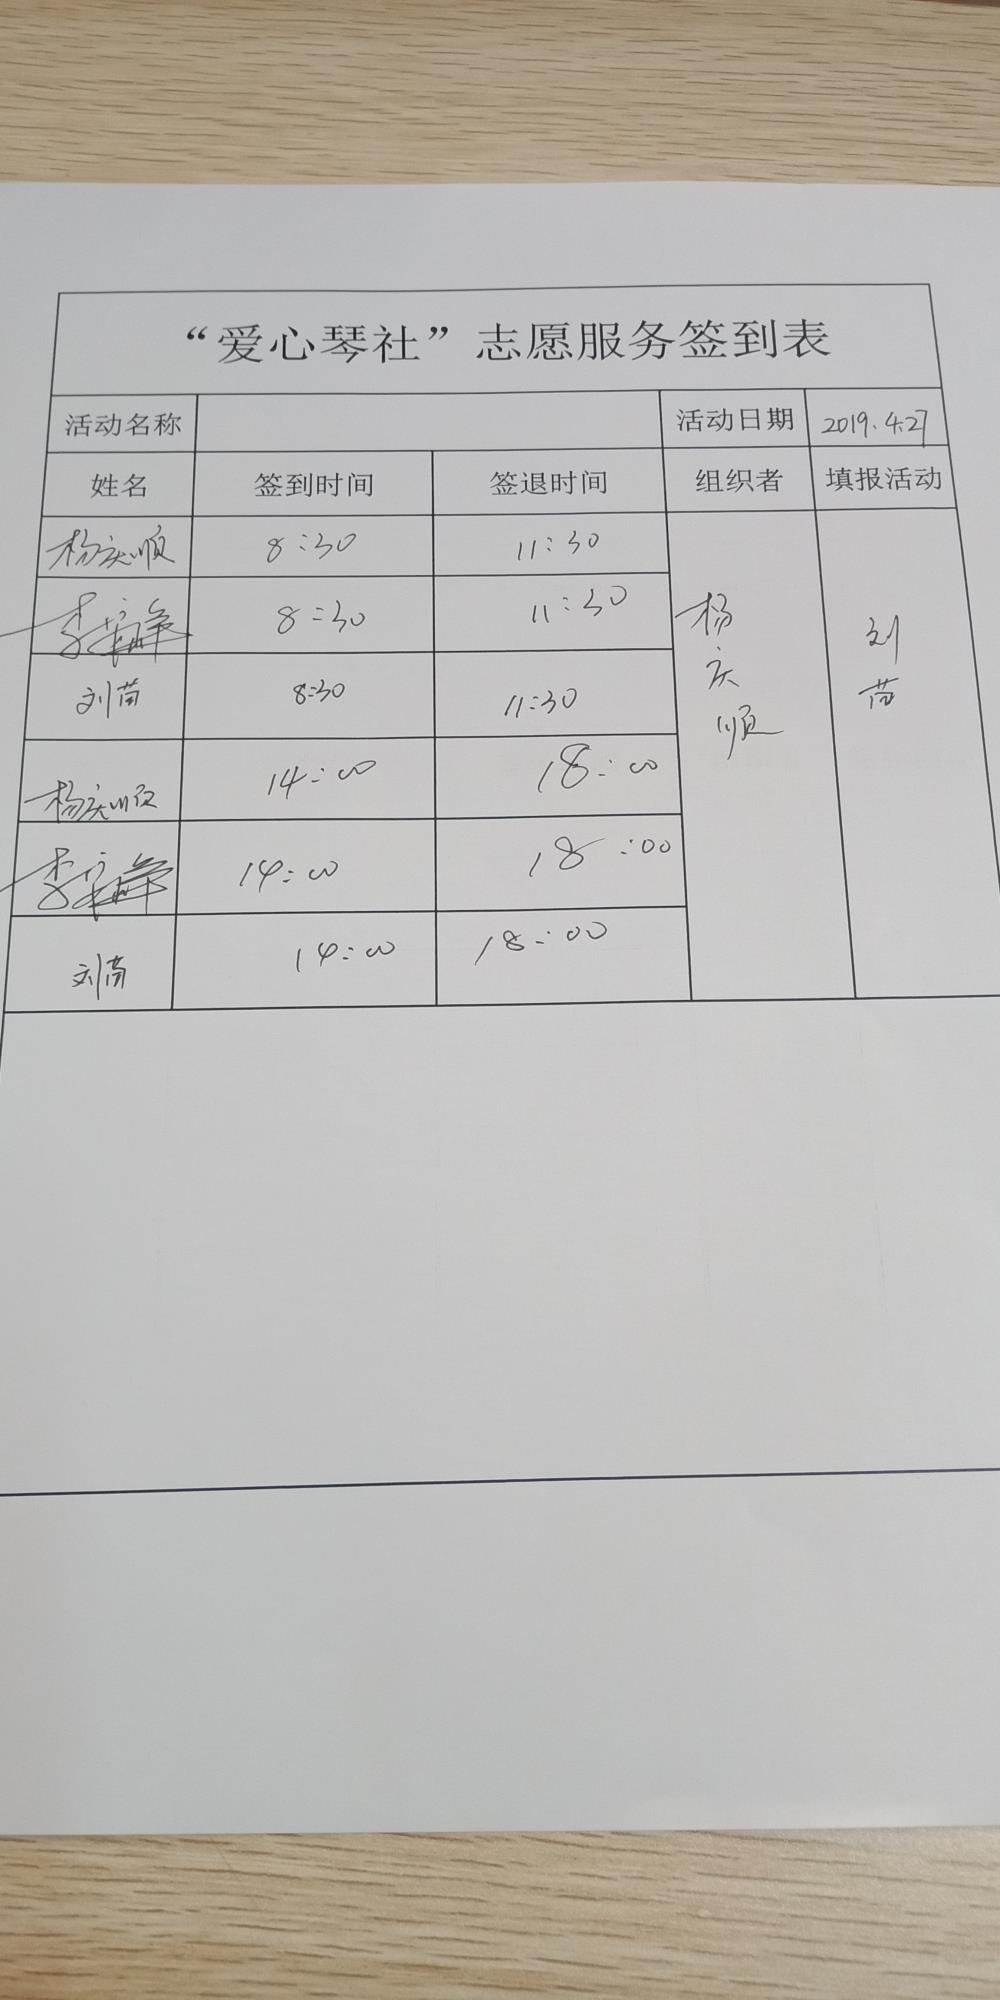 “爱心琴社”志愿服务签到表
活动名称 活动日期 2019.4.27
姓名 签到时间 签退时间 组织者 填报活动
杨庆顺 8:30 11:30 杨庆顺 刘苗
李 峰 8:30 11:30
刘苗 8:30 11:30
杨庆顺 14:00 18:00
李 峰 14:00 18:00
刘苗 14:00 18:00